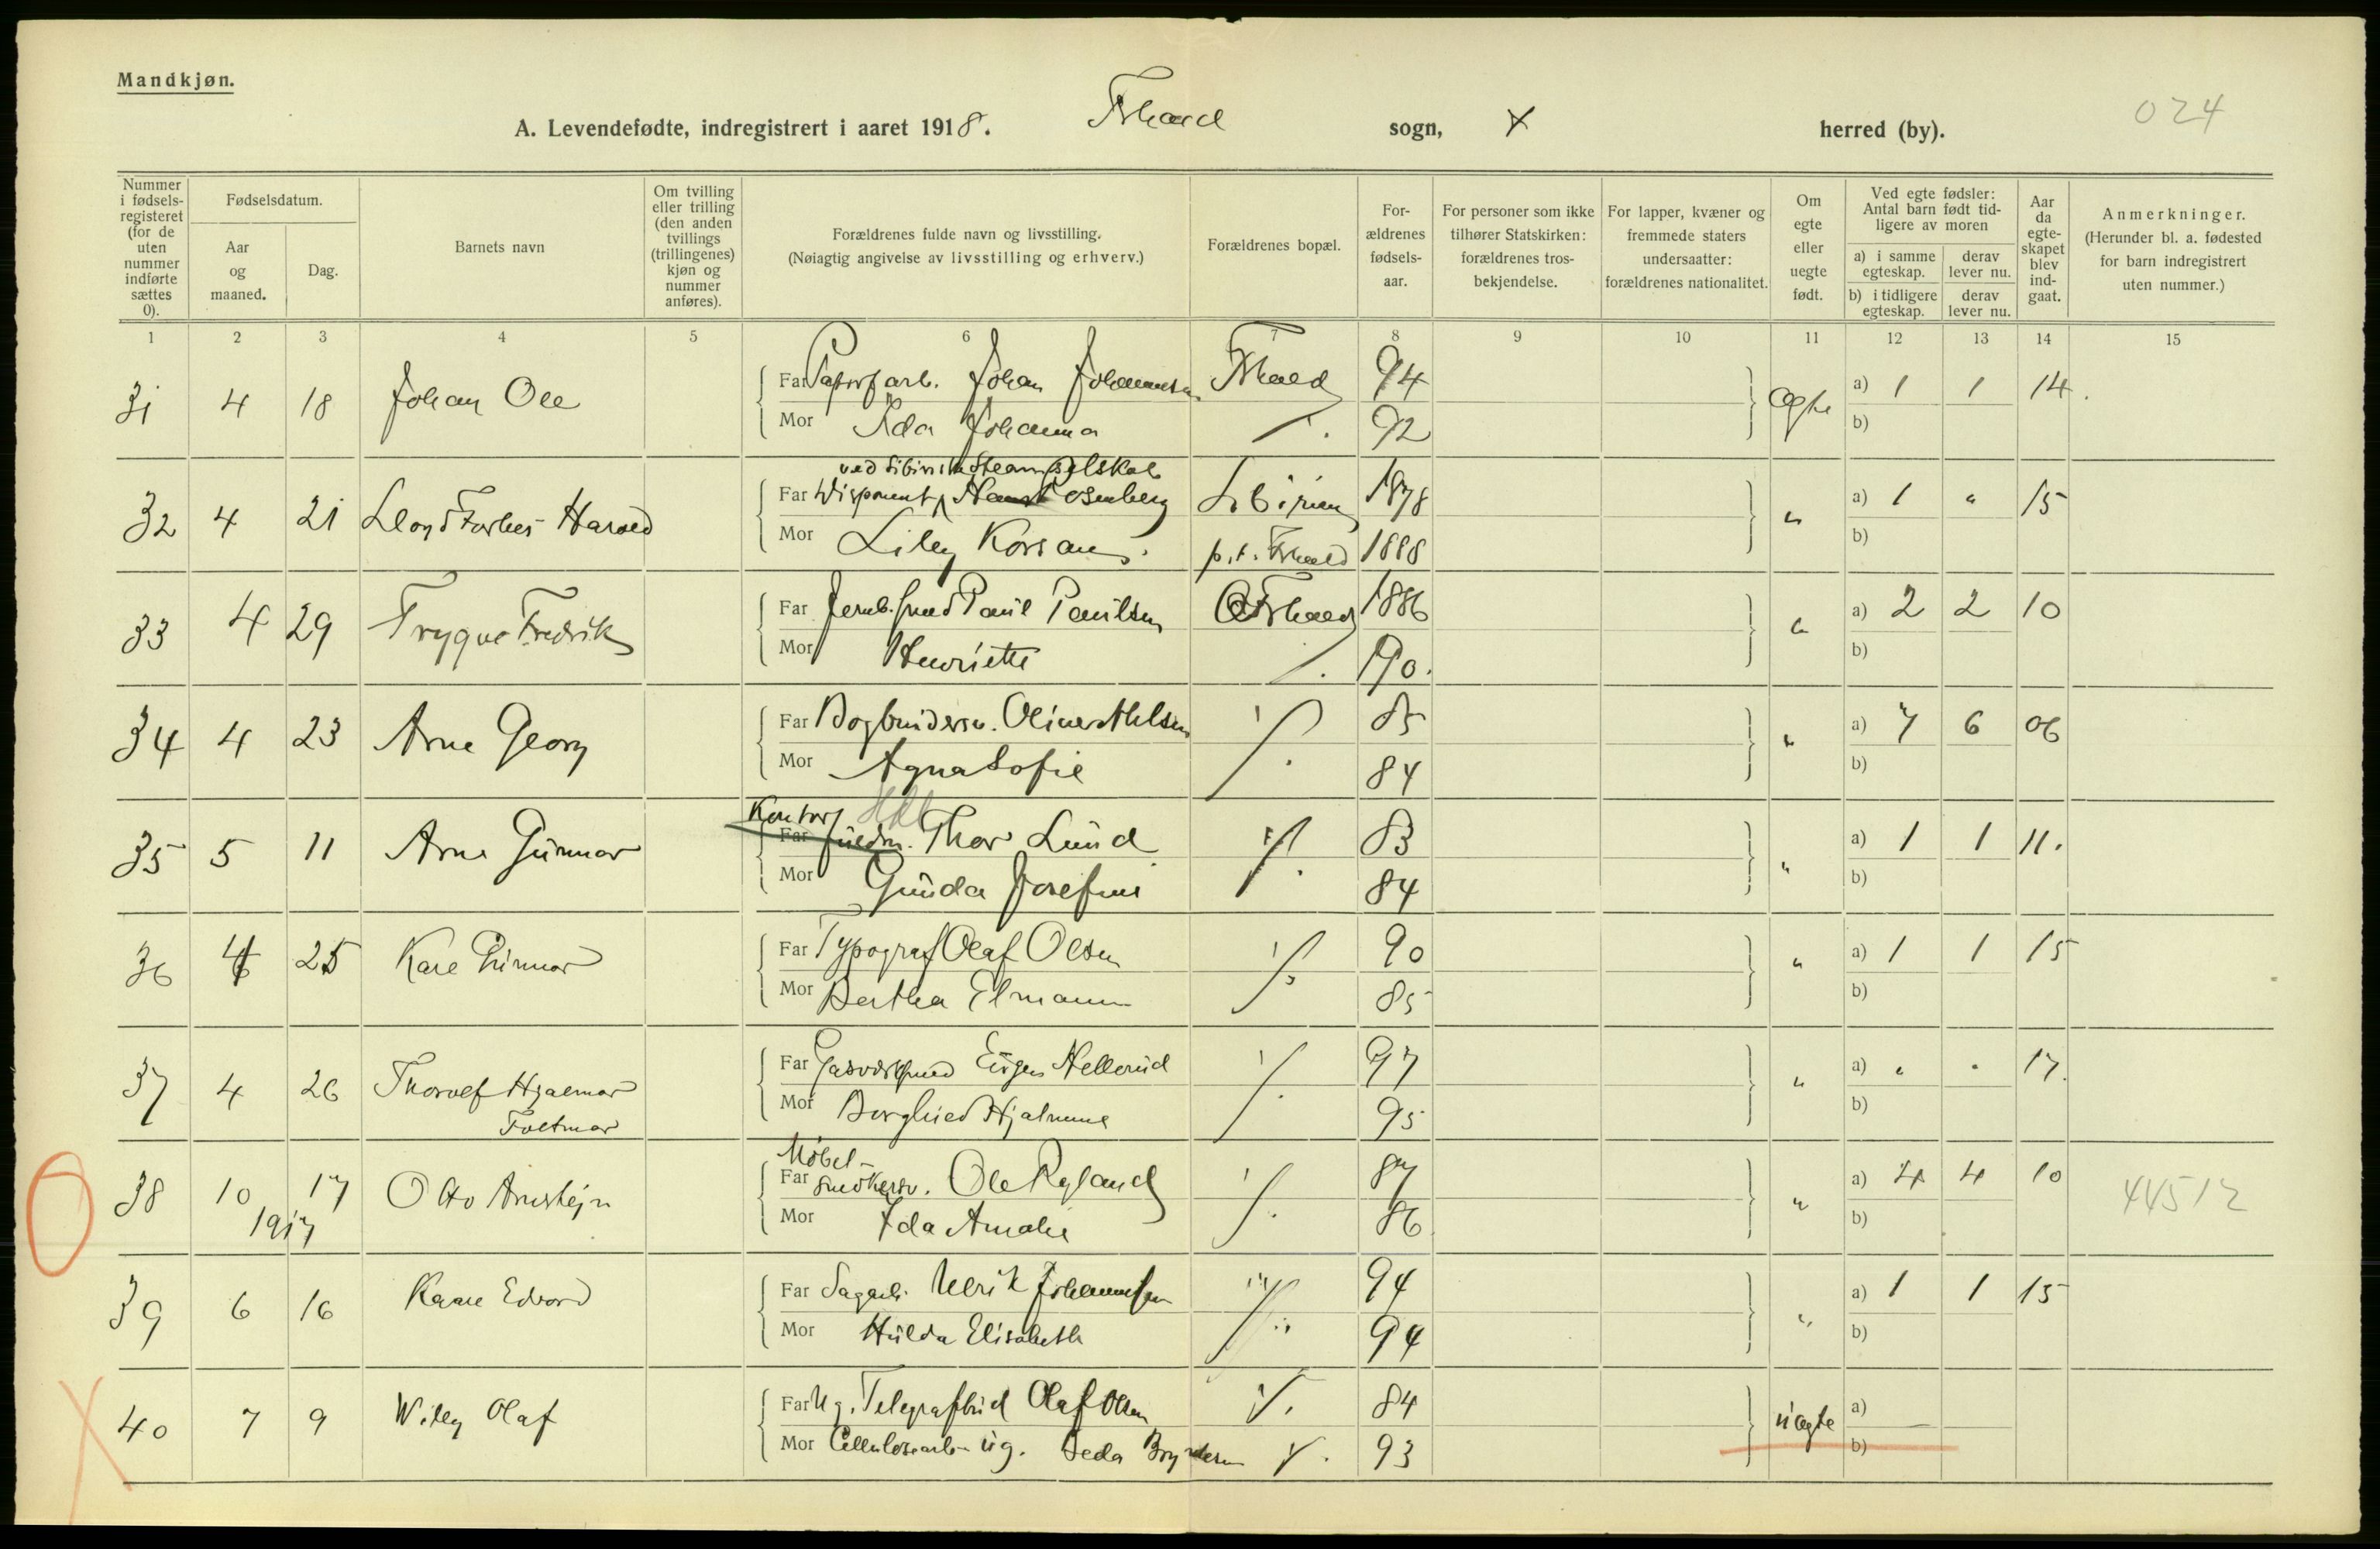 Mandkjøn.
024
A. Levendefødte, indregistrert i aaret 1918. Frhald sogn, herred (by).
Nummer i fødsels-registeret (for de uten nummer indførte sættes 0).
Fødselsdatum.
Aar og maaned.
Dag.
Barnets navn
Om tvilling eller trilling (den anden tvillings (trillingenes) kjøn og nummer anføres).
Forældrenes fulde navn og livsstilling.
(Nøiagtig angivelse av livsstilling og erhverv.)
Forældrenes bopæl.
For-ældrenes fødsels-aar.
For personer som ikke tilhører Statskirken: forældrenes tros-bekjendelse.
For lapper, kvæner og fremmede staters undersaatter: forældrenes nationalitet.
Om egte eller uegte født.
Ved egte fødsler: Antal barn født tid-ligere av moren
a) i samme egteskap.
derav lever nu.
b) i tidligere egteskap.
derav lever nu.
Aar da egte-skapet blev ind-gaat.
Anmerkninger.
(Herunder bl. a. fødested for barn indregistrert uten nummer.)
1 2 3 4 5 6 7 8 9 10 11 12 13 14 15
31 4 18 Johan Ole Far Johan Johannesen Frhald 94 Ægte a) 1 1 14.
Mor Ida Johanna 92 b)
32 4 21 Lloyd Forbes Harald
Far Disponent Rosenberg Sibirien 1878 " a) 1 " 15
Mor Lilly p.t. Frhald 1888 b)
33 4 29 Trygve Fredrik Far Paul Paulsen Frhald 1886 " a) 2 2 10
Mor Henriette 190. b)
34 4 23 Arne Georg Far Bogbindersv. 85 " a) 7 6 06
Mor Agna Sofie 84 b)
Kontorf
35 5 11 Arne Gunnar Far Thor Lund 83 " a) 1 1 11.
Mor Gunda Josefine 84 b)
36 4 25 Kare Gunnar Far Typograf Olaf Olsen 90 " a) 1 1 15
Mor Bertha Elmann 85 b)
37 4 26 Thorolf Hjalmar Far Eugen Hellerud 97 " a) " " 17.
Foltmar Mor Borghild Hjalmine 95 b)
Møbel-
38 10 17 Otto Arnstejn Far snedkersv. Ole Ryland 87 " a) 4 4 10 44512
1917 Mor Ida Amalie 86 b)
39 6 16 Kaare Edvard Far Sagarb. Ulrik Johannesen 94 " a) 1 1 15
Mor Hulda Elisabeth 94 b)
40 7 9 Willy Olaf Far Ug. Telegrafbud Olaf Olsen 84 uægte a)
Mor Cellulosearb. ug. 93 b)